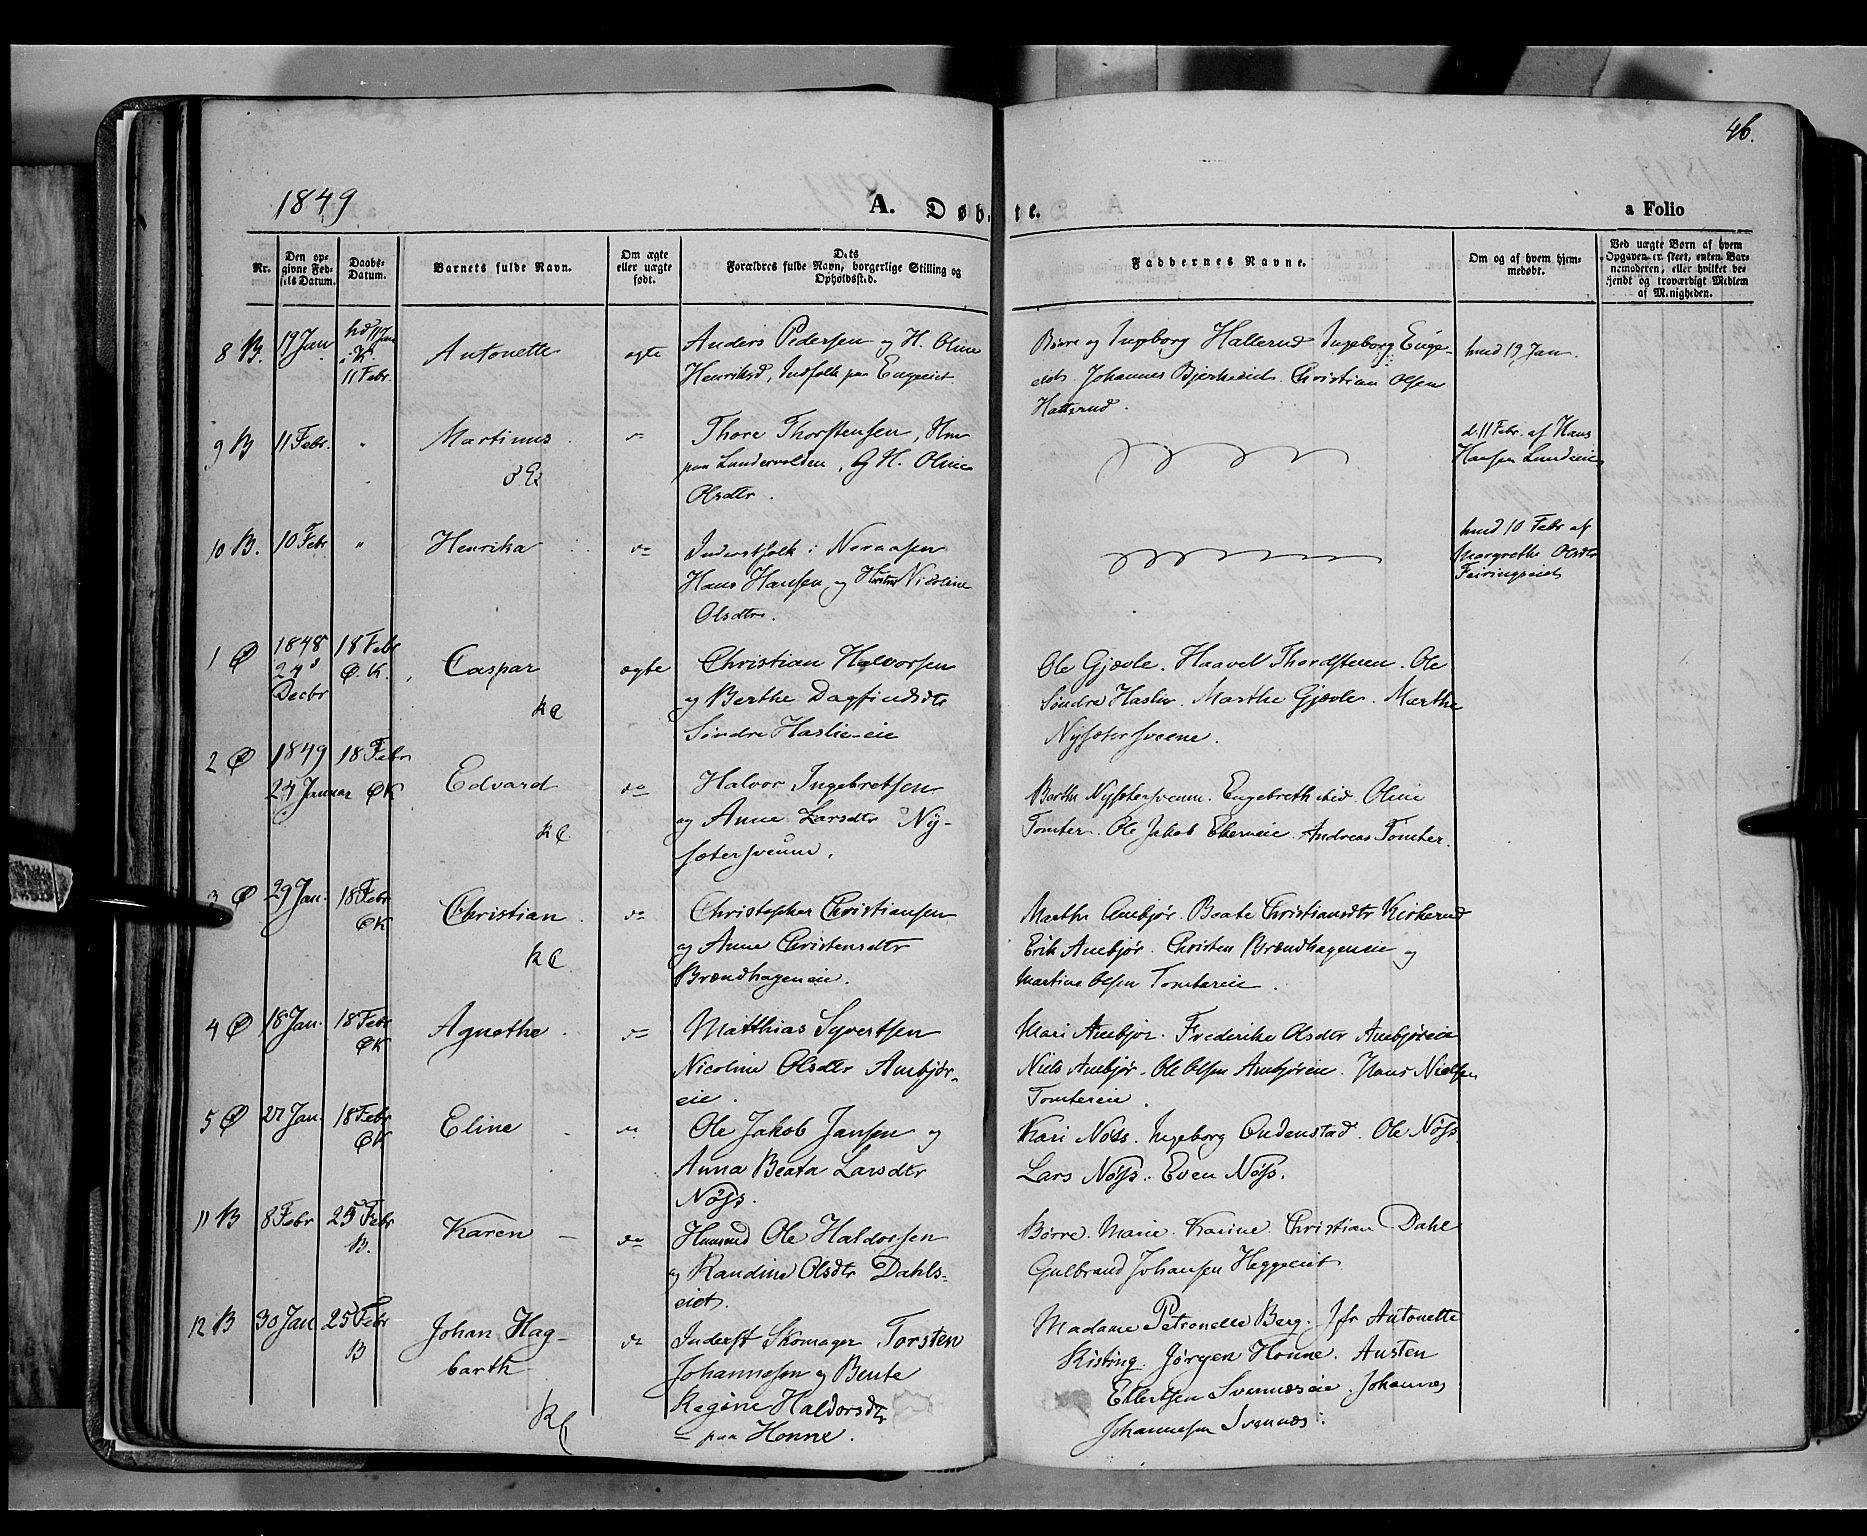 46.
1849
A. Døbte.
a Folio
Nr.
Den opgivne Fødsels Datum.
Daabs-Datum.
Barnets fulde Navn.
Om ægte eller uægte født.
Dets Forældres fulde Navn, borgerlige Stilling og Opholdssted.
Faddernes Navne.
Om og af hvem hjemmedøbt.
Ved uægte Børn af hvem Opgaven er skeet, enten Barnemoderen, eller hvilket bekjendt og troværdigt Medlem af Menigheden.
8 B. 19 Jan
11 Febr.
Antonette
ægte
Anders Pedersen og H. Oline
Henriksd, Indfolk paa Engeeiet
Børre og Ingeborg Hallerud Ingeborg Enge-
eiet. Johannes Bjerkeeiet. Christian Olsen
Hallerud.
hmd 19 Jan.
9 B 11 Febr. "
Martinus
do
Thore Thorstensen, Hmd
paa Lundervolden, og H. Oline
Olsdtr.
d. 11 Febr. af Hans
Hansen Lundeeie
10 B. 10 Febr "
Henrika
do
Inderstfolk i Noraasen
Hans Hansen og Hustru Nicoline
Olsdtr.
hmd 10 Febr af
Margrethe Olsdtr
Feiringeiet
1 Ø 1848
24d
Decbr
18 Febr
Ø. K.
Caspar
KC
ægte
Christian Halvorsen
og Berthe Dagfindsdtr
Søndre Haslie-eie
Ole Gjævle. Haavel Thordsteen. Ole
Søndre Haslie. Marthe Gjævle. Marthe
Nysætersveene.
2 Ø 1849
24 Januar
18 Febr
ØK
Edvard
KC
do
Halvor Ingebretsen
og Anne Larsdtr Ny-
sætersveene.
Berthe Nysætersveene. Engebreth ibid. Oline
Tomter. Ole Jakob Ekerneie. Andreas Tomter.
3 Ø 29 Jan.
18 Febr
ØK
Christian
KC
do
Christopher Christiansen
og Anne Christensdtr
Brændhageneie.
Marthe Ambjør. Beate Christiansdtr Kirkerud
Erik Ambjør. Christen Brændhageneie og
Martine Olsen Tomtereie.
4 Ø 18 Jan.
18 Febr
ØK
Agnethe
do
Matthias Syvertsen
Nicoline Olsdtr Ambjør-
eie.
Mari Ambjør. Frederike Olsdtr Ambjøreie
Niels Ambjør. Ole Olsen Ambjøreie. Hans Nielsen
Tomtereie.
5 Ø 27 Jan.
18 Febr
ØK
Eline
do
Ole Jakob Jansen og
Anna Beata Larsdtr
Nøss.
Kari Nøss. Ingeborg Oudenstad. Ole Nøss.
Lars Nøss. Even Nøss.
11 B 8 Febr
25 Febr
B.
Karen
do
Huusmd Ole Haldorsen
og Randine Olsdtr Dahls-
eiet.
Børre. Marie. Karine. Christian Dahl
Gulbrand Johansen Heggeeiet
12 B 30 Jan
25 Febr
B
Johan Hag-
barth
KC
do
Inderst Skomager Torsten
Johannesen og Bente
Regine Haldorsdtr
paa Honne.
Madame Petronelle Berg. Jfr Antonette
Kisting. Jørgen Honne. Austen
Ellertsen Svennæseie. Johannes
Johannesen Svennæs.